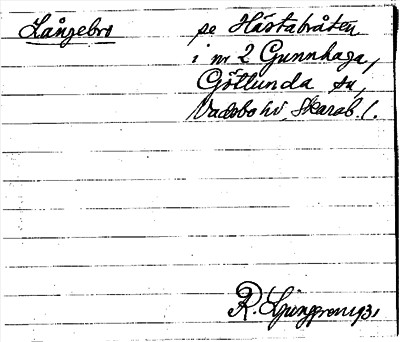 Långebro se Hästabråten
i nr 2 Gunnhaga,
Götlunda sn,
Vadsbo hd, Skarab. l.
R. Ljunggren 1931